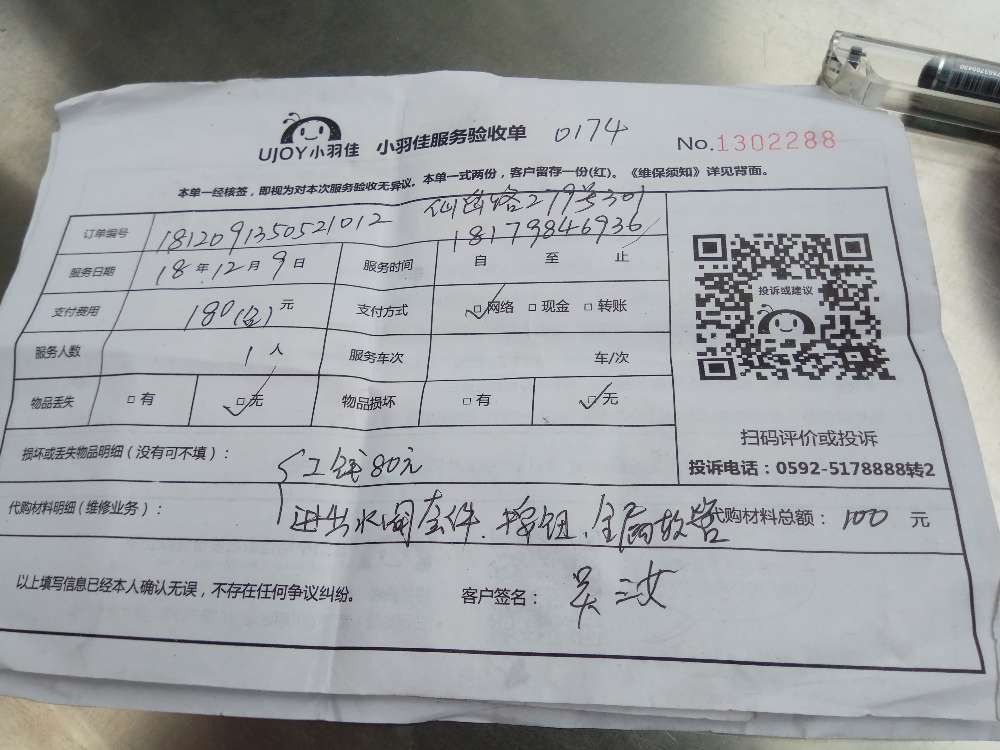 UJOY小羽佳 小羽佳服务验收单 0174 No.1302288
本单一经核签，即视为对本次服务验收无异议。本单一式两份，客户留存一份(红)。《维保须知》详见背面。
仙岳路279号301
订单编号 181209135052 1012 18179846936
服务日期 18年12月9日 服务时间 自 至 止
支付费用 180(全)元 支付方式 ☑网络 □现金 □转账
投诉或建议
服务人数 1人 服务车次 车/次
物品丢失 □有 ☑无 物品损坏 □有 ☑无
扫码评价或投诉
损坏或丢失物品明细（没有可不填）： 工钱80元
投诉电话：0592-5178888转2
代购材料明细（维修业务）： 进出水阀套件、按钮、金属软管 代购材料总额： 100 元
以上填写信息已经本人确认无误，不存在任何争议纠纷。 客户签名： 吴